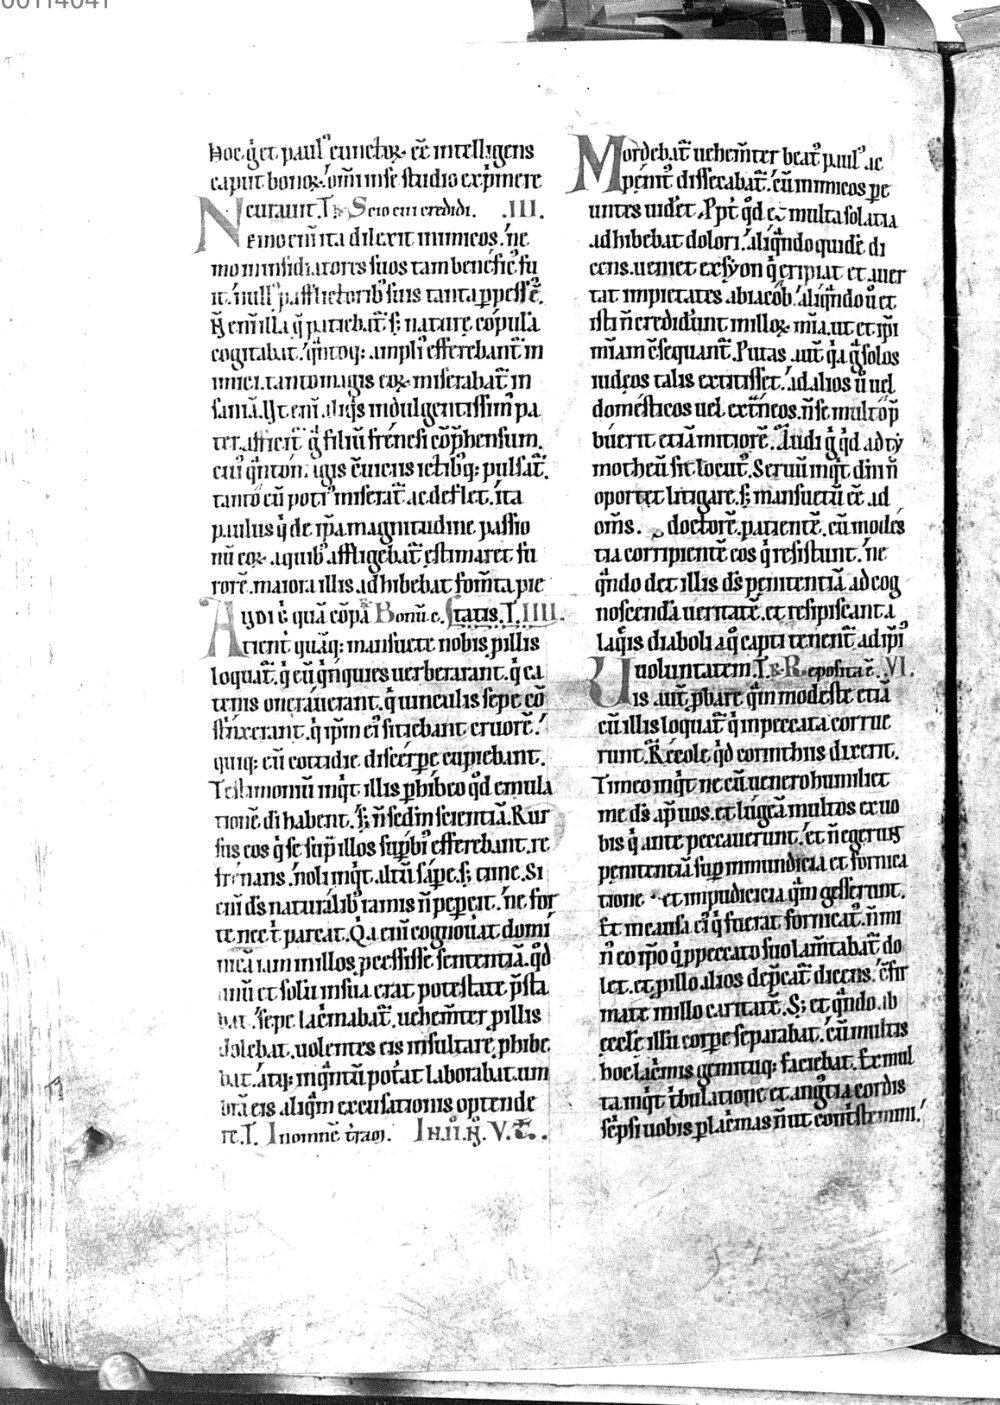 00114041
hoc g̃ et paul᾽ cunctoꝝ ēē intelligens
caput bonoꝝ. om̄i in se studio exp̃mere
curauit. T. R̃ Scio cui credidi. .III.
Nemo cm̄ ita dilexit inimicos. ne
mo in insidiatores suos tam benefic᾽ fu
it. null᾽ p afflictorib᾽ suis tanta ꝑpess᾽ ē.
N̄ em̄ illa q̄ patiebat᷑. s; nature copula
cogitabat. q̃ntoq; ampli᾽ efferebant᷑ in
imici. tanto magis eoꝝ miserabat᷑ in
saniā. Vt em̄ aliq̇s indulgentissim᾽ pa
ter afficit᷑ g̃ filiū frenesi cōp̃hensum.
cui᾽ q̃nto magis cuiens ictibq; pulsat᷑.
tanto eū poti᾽ miserat᷑ ac deflet. ita
paulus q̇ de ip̄a magnitudine passio
nū eoꝝ a quib᾽ affligebat᷑ estimaret fu
rorē. maiora illis adhibebat fom̄ta pie
tatis. T. Bonū c. .IIII.
Audi ḡ quā cōpa
tient᷑ quāq; mansuete nobis ꝓ illis
loquat᷑. q̇ eū q̇nq̇uies uerberarant. q̇ ca
tenis onerauerant. q̇ uinculis sepe cō
sṫnxerant. q̇ ip̄m ei᾽ sitiebant cruorē.
quiq; eū cottidie discerpe cupiebant.
Testimoniū inq̇t illis ꝑhibeo qd̄ emula
tionē di habent. s; n̄ sed̄m scientiā. Rur
sus eos q̇ se sup̃ illos sup̃bi᾽ efferebant. re
frenans. noli inq̇t altū sapc̄. s; time. Si
em̄ ds̄ naturalib᾽ ramis n̄ pep̃cit. ne for
te nec t̄ parcat. Q̇a em̄ cognouat domi
nicā iam in illos p̃cessisse sententiā. qd̄
unū et solū in sua erat potestate p̄sta
bat. sepe lac̃mabat᷑. uehem̄ter ꝓ illis
dolebat. uolentes eis insultare ꝓhibe
bat. atq; inq̃ntū pot̃at laborabat um
brā eis aliq̃m excusationis ostende
re. T. In omnē t̄ram. In.II.N̄. V. .
Mordebat᷑ uehem̄ter beat᾽ paul᾽ ac
penit᾽ dissecabat᷑. cū inimicos pe
untes uidēt. Ꝓpt̃ qd̄ ꝫ multa solatia
adhibebat dolori. aliq̃ndo quidē di
cens. ueniet ex syon q̇ eripiat et auer
tat impietates ab iacob. aliq̃ndo ū et
isti n̄ credidunt in illoꝝ mīa. ut et ip̄i
mīam c̄sequant᷑. Putas aut̄ q̇a g̃ solos
iudeos talis extitisset. ad alios ū uel
domesticos uel ext̃neos. n̄ se multop̄
buerit etiā mitiorē. Audi g̃ q̇d ad ty
motheū sit locut᾽. Seruū inq̇t dn̄i n̄
oportet litigare. s; mansuetū ēē ad
om̄s. doctorē. patientē. cū modes
tia corripientē eos q̇ resistunt. ne
q̃ndo det illis ds̄ penitentiā ad cog
noscendā ueritatē. et resipiscant a
laq̇s diaboli a q̊ capti tenent᷑ ad ip̄i᾽
uoluntatem. T. R̃ Reposita ē. .VI.
Vis aut̄ ꝓbare q̃m modeste etiā
cū illis loquat᷑ q̇ in peccata corrue
runt. Recole qd̄ corinthiis dixerit.
Timeo inq̇t ne cū uenero humiliet
me ds̄ apud uos. et lugeā multos ex uo
bis q̇ ante peccauerunt. et n̄ egerunt
penitentiā sup inmundicia et fornica
tione et impudicicia q̃m gesserunt.
Et in causa ei᾽ q̇ fuerat fornicat᾽. n̄ mi
n᾽ eo ip̄o q̇ ꝓ peccato suo lam̄tabat᷑ do
let. et ꝓ illo alios dep̃cat᷑ dicens. c̄fir
mate in illo caritatē. S; et q̃ndo ab
eccl̄e illū corpe separabat. cū multis
hoc lac̃mis gemituq; faciebat. Ex mul
ta inq̇t t̃bulatione et angustia cordis
sc̃psi uobis ꝓ lac̃mas n̄ ut cont̃stemini.